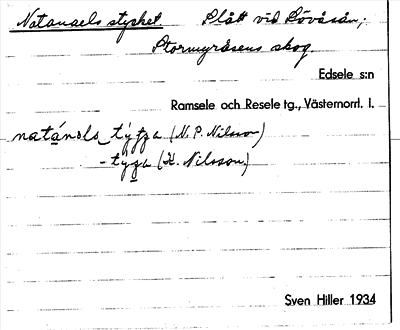 Natanaels stycket. Slått vid Lövåsån;
Stormyråsens skog.
Edsele s:n
Ramsele och Resele tg., Västernorrl. l.
(N. P. Nilsson)
(K. Nilsson)
Sven Hiller 1934